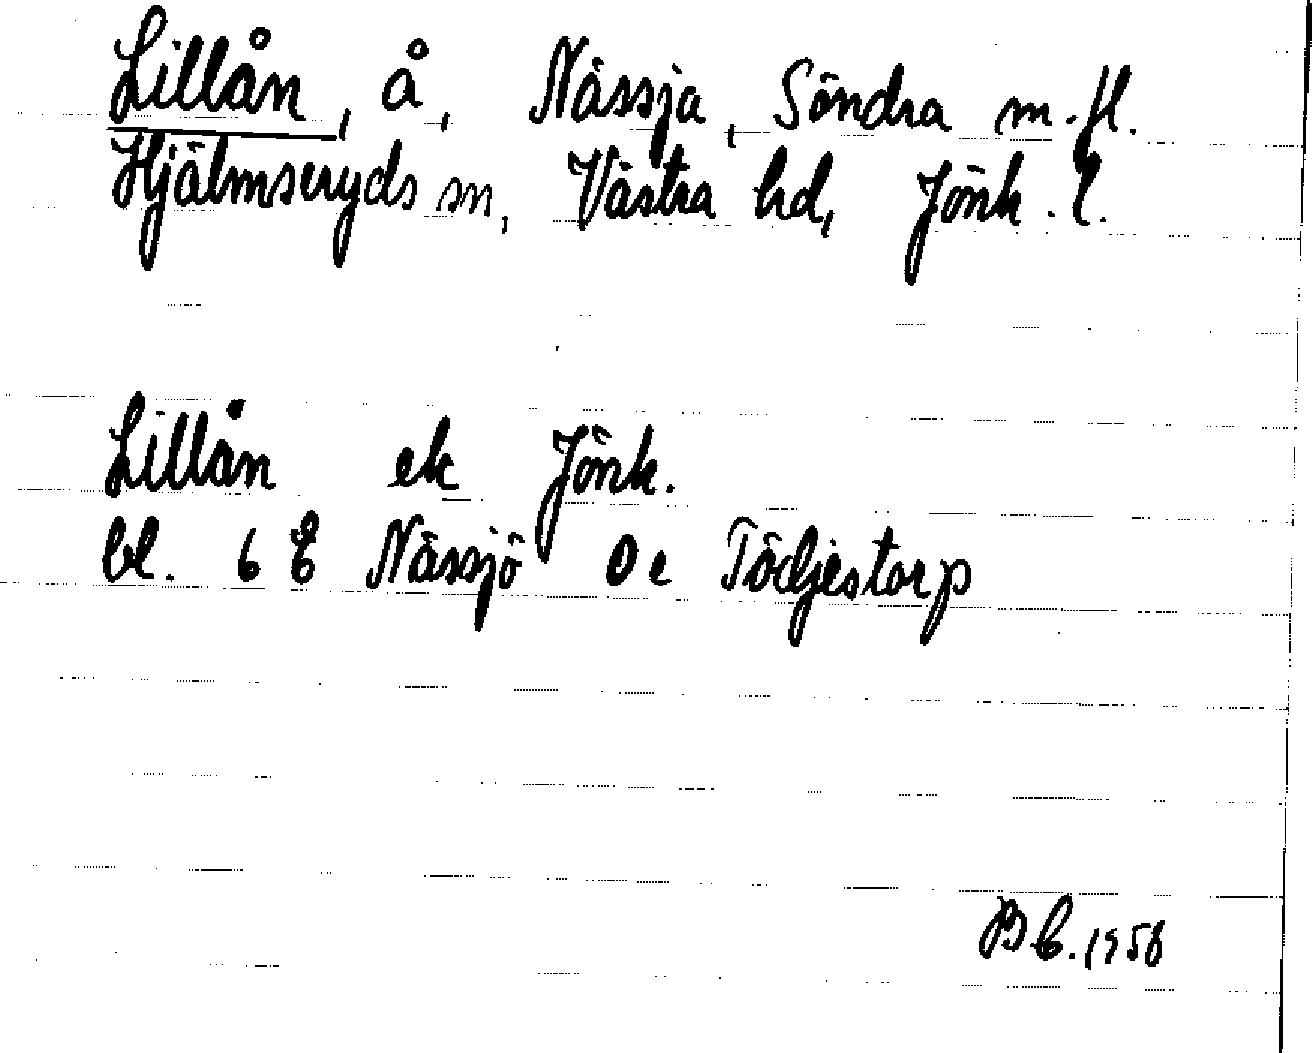 Lillån, å, Nässja, Söndra m.fl.
Hjälmseryds sn, Västra hd, Jönk. l.
Lillån ek Jönk.
bl. 6 E Nässjö 0e Tödjestorp
B C. 1958